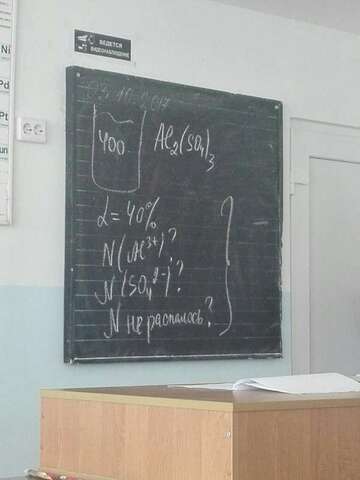 ВЕДЕТСЯ
ВИДЕОНАБЛЮДЕНИЕ
03.10.2017
400
Al₂(SO₄)₃
α = 40%
N(Al³⁺)?
N(SO₄²⁻)?
N не распалось?
Ni
Pd
Pt